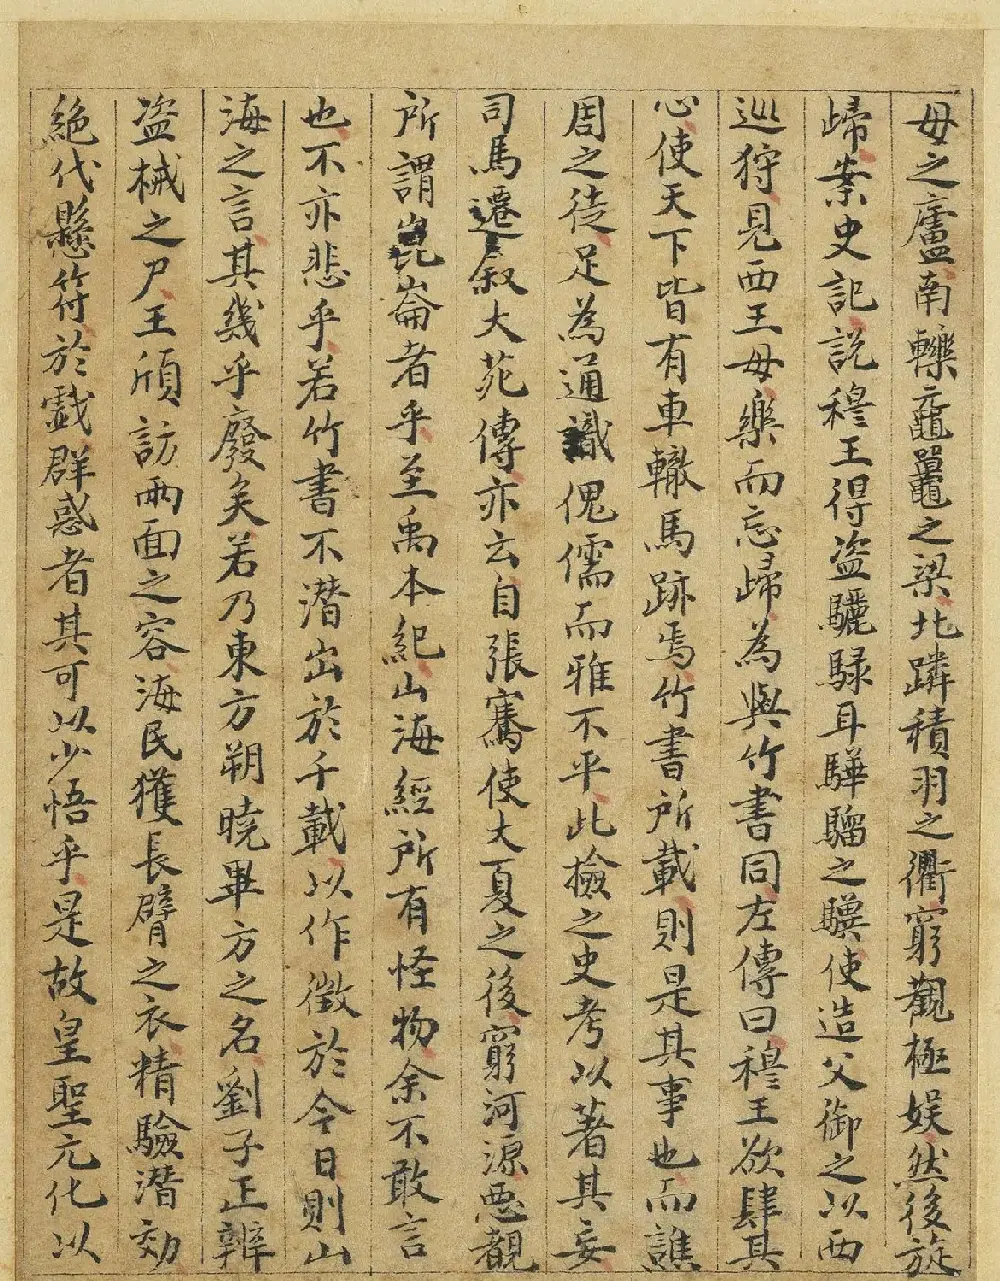 母之廬南轢黿鼉之梁北躡積羽之衢窮觀極娱然後旋
歸案史記說穆王得盗驪騄耳驊騮之驥使造父御之以西
巡狩見西王母樂而忘歸為與竹書同左傳曰穆王欲肆其
心使天下皆有車轍馬跡焉竹書所載則是其事也而譙
周之徒足為通識傀儒而雅不平此檢之史考以著其妄
司馬遷叙大菀傳亦云自張騫使大夏之後窮河源惡覩
所謂崑崙者乎至禹本紀山海經所有怪物余不敢言
也不亦悲乎若竹書不潜出於千載以作徵於今日則山
海之言其幾乎廢矣若乃東方朔曉畢方之名劉子正辨
盗械之尸王頎訪兩面之容海民獲長臂之衣精驗潜効
絶代懸符於戲群惑者其可以少悟乎是故皇聖元化以